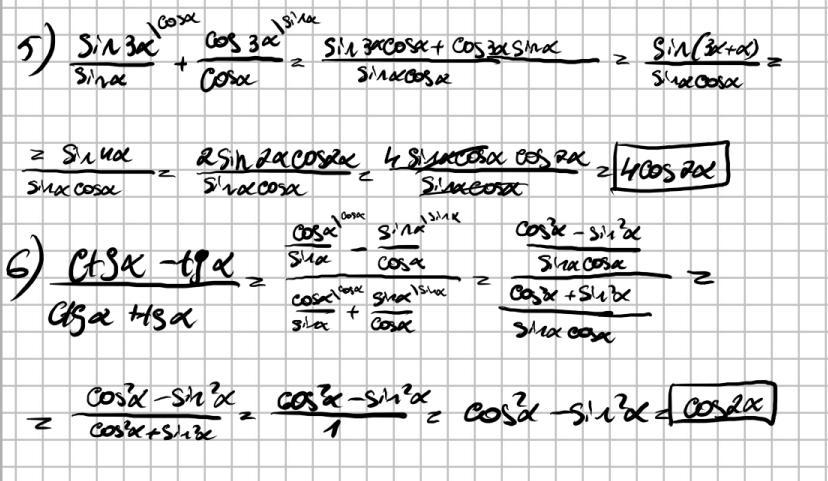 5) sin 3α / sin α \cos α + cos 3α / cos α \sin α = (sin 3α cos α + cos 3α sin α) / (sin α cos α) = sin(3α+α) / (sin α cos α) =
= sin 4α / (sin α cos α) = 2 sin 2α cos 2α / (sin α cos α) = 4 sin α cos α cos 2α / (sin α cos α) = 4 cos 2α
6) (ctg α - tg α) / (ctg α + tg α) = (cos α / sin α \cos α - sin α / cos α \sin α) / (cos α / sin α \cos α + sin α / cos α \sin α) = ((cos²α - sin²α) / (sin α cos α)) / ((cos²α + sin²α) / (sin α cos α)) =
= (cos²α - sin²α) / (cos²α + sin²α) = (cos²α - sin²α) / 1 = cos²α - sin²α = cos 2α